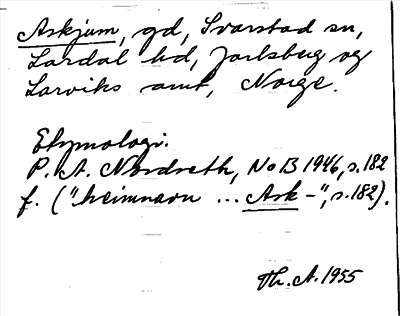 Askjum, gd, Svarstad sn,
Lardal hd, Jarlsberg og
Larviks amt, Norge.
Etymologi:
P. A. Nordseth, NoB 1946, s. 182
f. ("heimnavn ... Ask-", s. 182).
Th. A. 1955